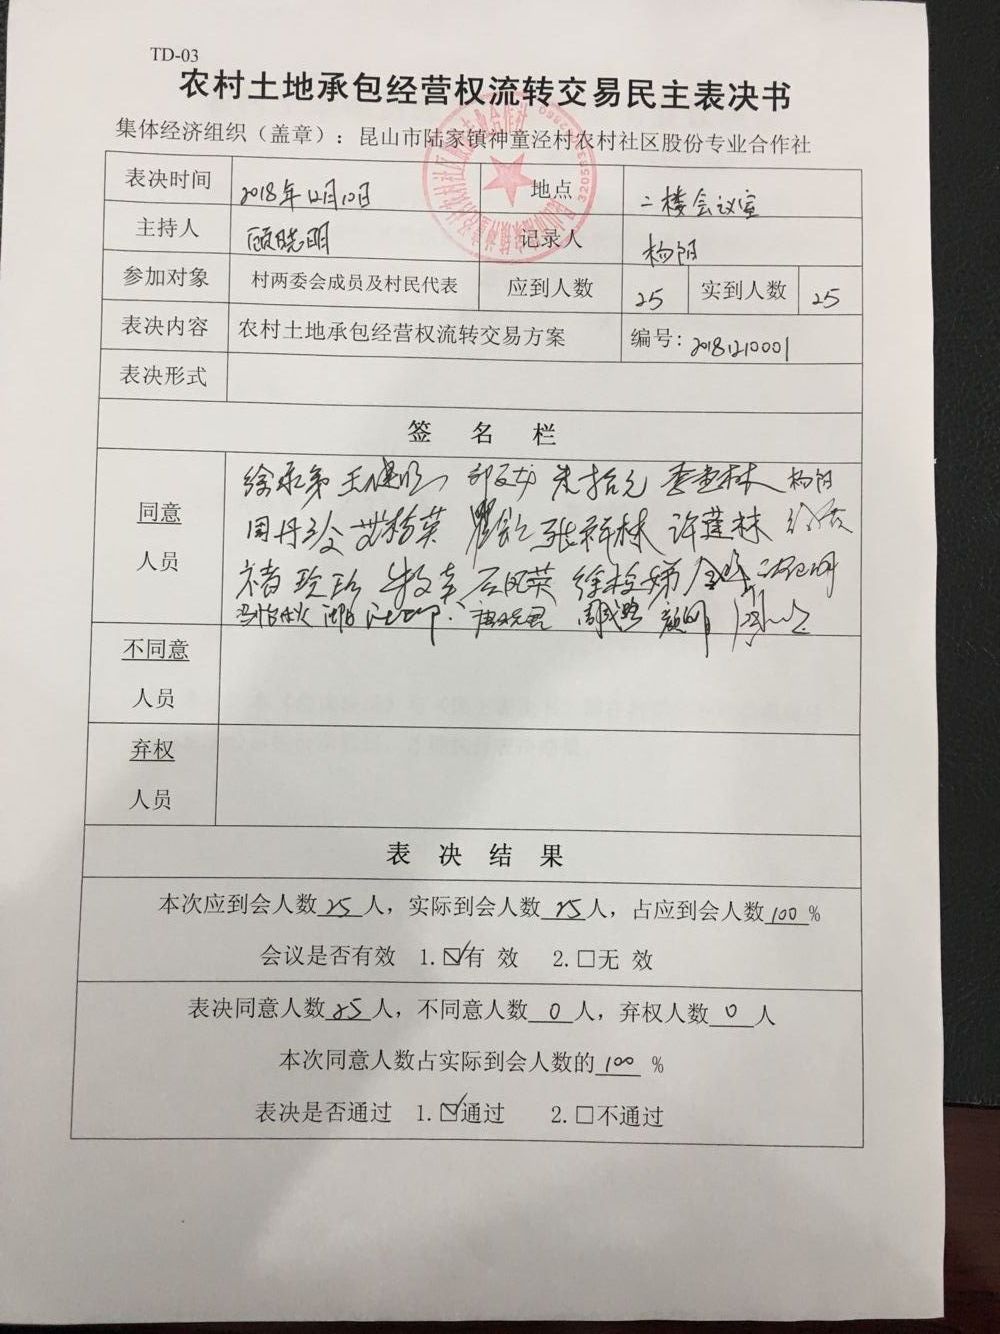 TD-03
农村土地承包经营权流转交易民主表决书
集体经济组织（盖章）：昆山市陆家镇神童泾村农村社区股份专业合作社
表决时间 2018年12月10日 地点 二楼会议室
主持人 顾晓明 记录人 杨阳
参加对象 村两委会成员及村民代表 应到人数 25 实到人数 25
表决内容 农村土地承包经营权流转交易方案 编号：20181210001
表决形式
签 名 栏
同意
人员
杨阳
周丹 张祥林 许莲林
不同意
人员
弃权
人员
表 决 结 果
本次应到会人数25人，实际到会人数25人，占应到会人数100%
会议是否有效 1.☑有 效 2.□无 效
表决同意人数25人，不同意人数0人，弃权人数0人
本次同意人数占实际到会人数的100 %
表决是否通过 1.☑通过 2.□不通过